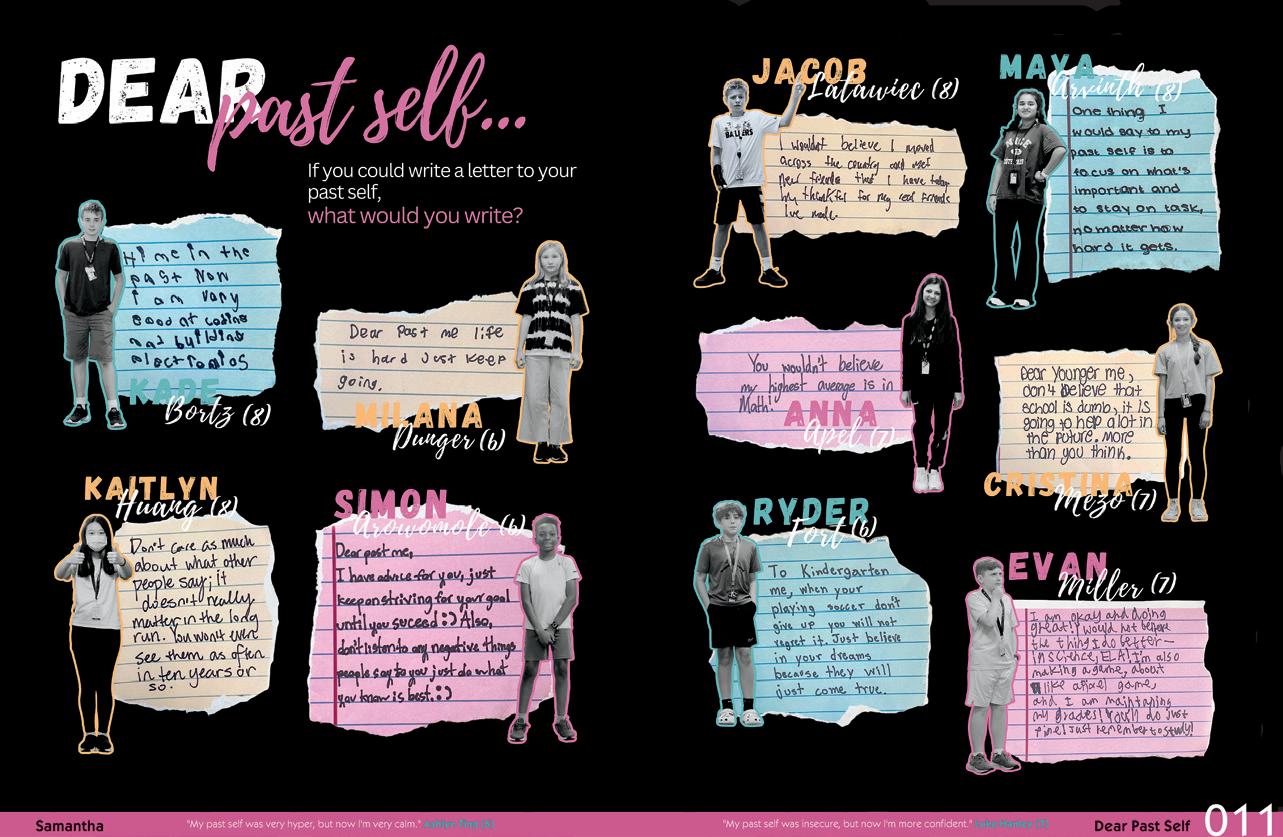 DEAR past self...
If you could write a letter to your
past self,
what would you write?
Hi me in the
past Now
I am vary
good at coding
and building
electronics
KADE
Bortz (8)
Dear Past me life
is hard Just keep
going.
MILANA
Dunger (6)
KAITLYN
Huang (8)
Don't care as much
about what other
people say; it
doesn't really
matter in the long
run. You won't even
see them as often
in ten years or
so.
SIMON
Arowomole (6)
Dear past me,
I have advice for you, just
keep on striving for your goal
until you suceed :) Also,
don't listen to any negative things
people say to you just do what
you know is best. :)
JACOB
Latawiec (8)
BALLERS
I wouldn't believe I moved
across the country and met
new friends that I have today
my thankful for my real friends
Ive made.
MAYA
Arvinth (8)
One thing I
would say to my
past self is to
focus on what's
important and
to stay on task,
no matter how
hard it gets.
You wouldn't believe
my highest average is in
Math!
ANNA
Apel (7)
Dear younger me,
don't believe that
school is dumb, it is
going to help a lot in
the future. More
than you think.
CRISTINA
Mezo (7)
RYDER
Fort (6)
To Kindergarten
me, when your
playing soccer don't
give up you will not
regret it. Just believe
in your dreams
because they will
just come true.
EVAN
Miller (7)
I am okay and doing
great! I would not believe
the things I do better—
in science, ELA! I'm also
making a game, about
like a pixel game,
and I am maintaining
my grades! You'll do just
fine! Just remember to study!
Samantha
"My past self was very hyper, but now I'm very calm."
"My past self was insecure, but now I'm more confident."
Dear Past Self 011